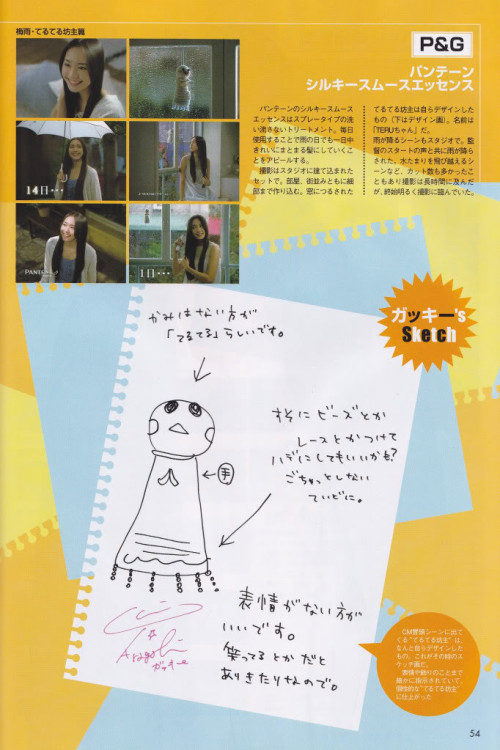 梅雨・てるてる坊主篇
P&G
パンテーン
シルキースムースエッセンス
14日…
PANTENE
1日…
パンテーンのシルキースムース
エッセンスはスプレータイプの洗
い流さないトリートメント。毎日
使用することで雨の日でも一日中
きれいにまとまる髪にしていくこ
とをアピールする。
撮影はスタジオに建て込まれた
セットで。部屋、街並みともに細
部まで作り込む。窓につるされた
てるてる坊主は自らデザインした
もの(下はデザイン画)。名前は
「TERUちゃん」だ。
雨が降るシーンもスタジオで。監
督のスタートの声と共に雨が降ら
された。水たまりを飛び越えるシ
ーンなど、カット数も多かったこ
ともあり撮影は長時間に及んだ
が、終始明るく撮影に臨んでいた。
ガッキー's
Sketch
かみはない方が
「てるてる」らしいです。
すそにビーズとか
レースとかつけて
ハデにしてもいいかも?
ごちゃっとしない
ていどに。
手
表情がない方が
いいです。
笑ってるとかだと
ありきたりなので。
Aragaki
ガッキー
CM冒頭シーンに出て
くる“てるてる坊主”は、
なんと自らデザインした
もの。これがその時のス
ケッチ画だ。
表情や飾りのことまで
細かに指示されていて、
個性的な“てるてる坊主”
に仕上がった
54